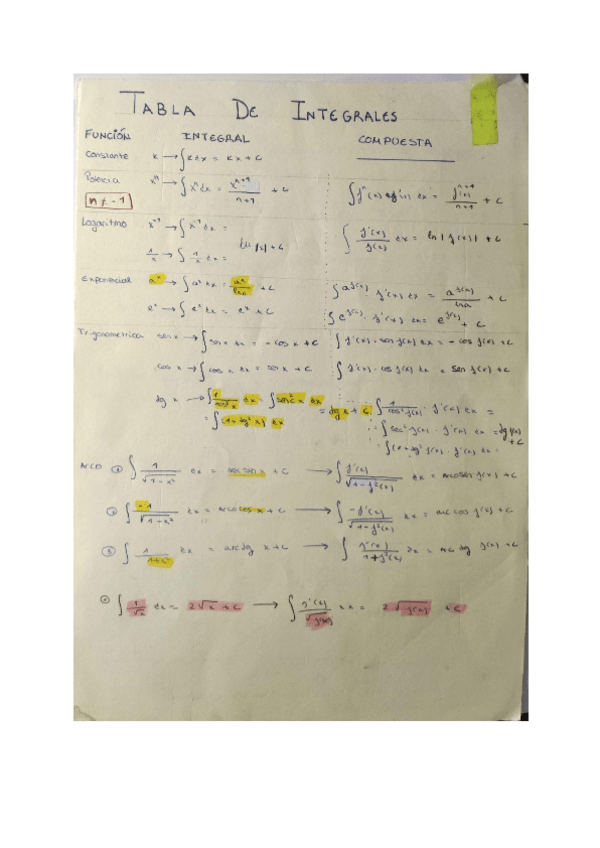 TABLA DE INTEGRALES
FUNCIÓN INTEGRAL COMPUESTA
Constante k → ∫k dx = kx + C
Potencia xⁿ → ∫xⁿ dx = xⁿ⁺¹/(n+1) + C ∫fⁿ(x) · f'(x) dx = f(x)ⁿ⁺¹/(n+1) + C
n ≠ -1
Logaritmo x⁻¹ → ∫x⁻¹ dx = ln|x| + C ∫ f'(x)/f(x) dx = ln|f(x)| + C
1/x → ∫ 1/x dx =
Exponencial aˣ → ∫aˣ dx = aˣ/ln a + C ∫a^f(x) · f'(x) dx = a^f(x)/ln a + C
eˣ → ∫eˣ dx = eˣ + C ∫e^f(x) · f'(x) dx = e^f(x) + C
Trigonometrica sen x → ∫sen x dx = - cos x + C ∫f'(x) · sen f(x) dx = - cos f(x) + C
cos x → ∫cos x dx = sen x + C ∫f'(x) · cos f(x) dx = sen f(x) + C
tg x → ∫ 1/cos² x dx = ∫sec² x dx = tg x + C ∫ 1/cos² f(x) · f'(x) dx =
= ∫(1+tg² x) dx = ∫sec² f(x) · f'(x) dx = tg f(x) + C
= ∫(1+tg² f(x) · f'(x) dx =
ARCO ① ∫ 1/√(1-x²) dx = + C → ∫ f'(x)/√(1-f²(x)) dx = arcosen f(x) + C
② ∫ -1/√(1-x²) dx = arco cos x + C → ∫ -f'(x)/√(1-f²(x)) dx = arc cos f(x) + C
③ ∫ 1/(1+x²) dx = arc tg x + C → ∫ f'(x)/(1+f²(x)) dx = arc tg f(x) + C
∫ 1/√x dx = 2√x + C → ∫ f'(x)/√f(x) dx = 2√f(x) + C